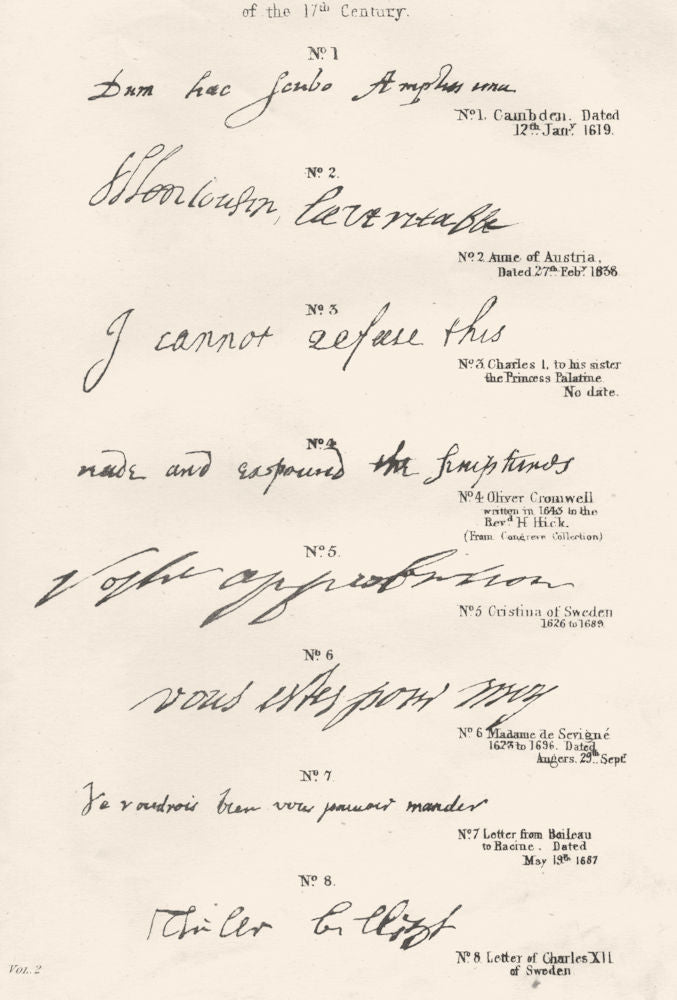 of the 17th Century.
No. 1
Dum hæc scribo
No. 1. Cambden. Dated
12th Jany. 1619.
No. 2.
la veritable
No. 2 Anne of Austria,
Dated 27th Feby. 1638
No. 3
I cannot refuse this
No. 3. Charles I, to his sister
the Princess Palatine.
No date.
No. 4
reade and expound the scriptures
No. 4 Oliver Cromwell
written in 1643 to the
Revd. H Hick.
(From Congreve Collection)
No. 5.
Vostre approbation
No. 5 Cristina of Sweden
1626 to 1689.
No. 6
vous estes pour moy
No. 6 Madame de Sevigné
1627 to 1696. Dated
Angers. 29th Sept
No. 7
Je voudrois bien vous pouvoir mander
No. 7 Letter from Boileau
to Racine. Dated
May 19th 1687
No. 8.
No. 8 Letter of Charles XII
of Sweden
VOL. 2